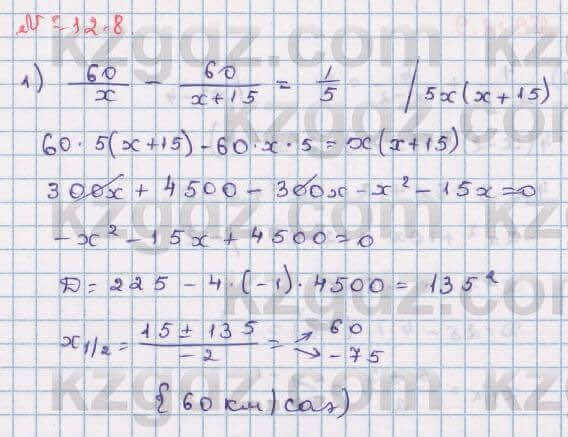 № 12.8.
1) 60/x - 60/(x+15) = 1/5 / 5x(x+15)
60·5(x+15)-60·x·5=x(x+15)
300x+4500-300x-x²-15x=0
-x²-15x+4500=0
D=225-4·(-1)·4500=135²
x1/2=(15±135)/-2= 60
-75
{60км/сағ}
kzgdz.com